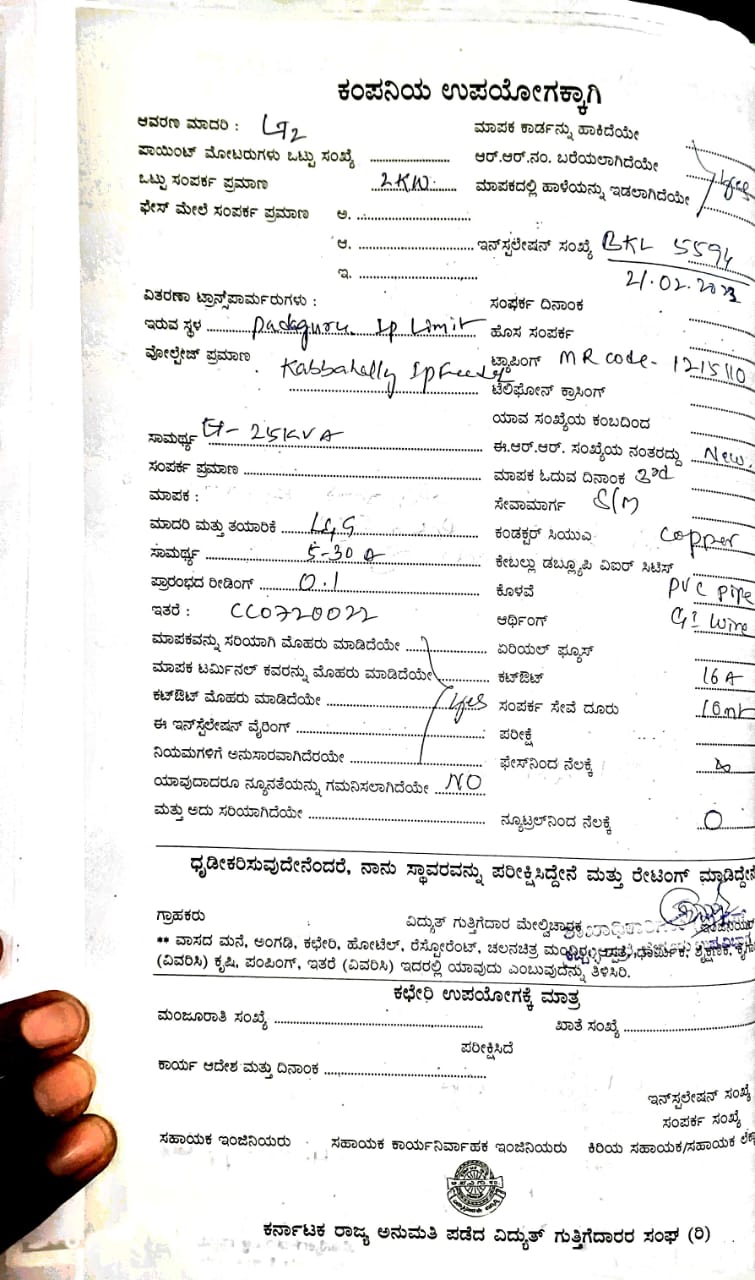 ಕಂಪನಿಯ ಉಪಯೋಗಕ್ಕಾಗಿ
ಆವರಣ ಮಾದರಿ : LT2 ಮಾಪಕ ಕಾರ್ಡನ್ನು ಹಾಕಿದೆಯೇ
ಪಾಯಿಂಟ್ ಮೋಟರುಗಳು ಒಟ್ಟು ಸಂಖ್ಯೆ ........ ಆರ್.ಆರ್.ನಂ. ಬರೆಯಲಾಗಿದೆಯೇ
ಒಟ್ಟು ಸಂಪರ್ಕ ಪ್ರಮಾಣ 2KW ಮಾಪಕದಲ್ಲಿ ಹಾಳೆಯನ್ನು ಇಡಲಾಗಿದೆಯೇ Yes
ಫೇಸ್ ಮೇಲೆ ಸಂಪರ್ಕ ಪ್ರಮಾಣ ಅ. ........
ಆ. ........ ಇನ್‌ಸ್ಟಲೇಷನ್ ಸಂಖ್ಯೆ BKL 5594
ಇ. ........ 21.02.2023
ವಿತರಣಾ ಟ್ರಾನ್ಸ್‌ಪಾರ್ಮರುಗಳು : ಸಂಪರ್ಕ ದಿನಾಂಕ
ಇರುವ ಸ್ಥಳ Padaguru Ip Limit ಹೊಸ ಸಂಪರ್ಕ
ವೋಲ್ಟೇಜ್ ಪ್ರಮಾಣ Kabbahally Ip Feeder ಟ್ಯಾಪಿಂಗ್ MR code - 1215110
ಟೆಲಿಫೋನ್ ಕ್ರಾಸಿಂಗ್
ಯಾವ ಸಂಖ್ಯೆಯ ಕಂಬದಿಂದ
ಸಾಮರ್ಥ್ಯ 25KVA ಈ.ಆರ್.ಆರ್. ಸಂಖ್ಯೆಯ ನಂತರದ್ದು New
ಸಂಪರ್ಕ ಪ್ರಮಾಣ ........ ಮಾಪಕ ಓದುವ ದಿನಾಂಕ 3rd
ಮಾಪಕ : ಸೇವಾಮಾರ್ಗ S/M
ಮಾದರಿ ಮತ್ತು ತಯಾರಿಕೆ L&G ಕಂಡಕ್ಟರ್ ಸಿಯುಎ Copper
ಸಾಮರ್ಥ್ಯ 5-30 A ಕೇಬಲ್ಲು ಡಬ್ಲ್ಯೂಪಿ ವಿಐರ್ ಸಿಟಿಸ್
ಪ್ರಾರಂಭದ ರೀಡಿಂಗ್ 0.1 ಕೊಳವೆ PVC pipe
ಇತರೆ : CC0720022 ಆರ್ಥಿಂಗ್ GI wire
ಮಾಪಕವನ್ನು ಸರಿಯಾಗಿ ಮೊಹರು ಮಾಡಿದೆಯೇ ........ ಏರಿಯಲ್ ಫ್ಯೂಸ್
ಮಾಪಕ ಟರ್ಮಿನಲ್ ಕವರನ್ನು ಮೊಹರು ಮಾಡಿದೆಯೇ ಕಟ್‌ಔಟ್ 16 A
ಕಟ್‌ಔಟ್ ಮೊಹರು ಮಾಡಿದೆಯೇ Yes ಸಂಪರ್ಕ ಸೇವೆ ದೂರು 10mt
ಈ ಇನ್‌ಸ್ಟೆಲೇಷನ್ ವೈರಿಂಗ್ ........ ಪರೀಕ್ಷೆ
ನಿಯಮಗಳಿಗೆ ಅನುಸಾರವಾಗಿದೆರಯೇ ........ ಫೇಸ್‌ನಿಂದ ನೆಲಕ್ಕೆ ∞
ಯಾವುದಾದರೂ ನ್ಯೂನತೆಯನ್ನು ಗಮನಿಸಲಾಗಿದೆಯೇ NO
ಮತ್ತು ಅದು ಸರಿಯಾಗಿದೆಯೇ ........ ನ್ಯೂಟ್ರಲ್‌ನಿಂದ ನೆಲಕ್ಕೆ 0
ಧೃಡೀಕರಿಸುವುದೇನೆಂದರೆ, ನಾನು ಸ್ಥಾವರವನ್ನು ಪರೀಕ್ಷಿಸಿದ್ದೇನೆ ಮತ್ತು ರೇಟಿಂಗ್ ಮಾಡಿದ್ದೇನೆ
ಗ್ರಾಹಕರು ವಿದ್ಯುತ್ ಗುತ್ತಿಗೆದಾರ ಮೇಲ್ವಿಚಾರಕ
** ವಾಸದ ಮನೆ, ಅಂಗಡಿ, ಕಛೇರಿ, ಹೋಟೆಲ್, ರೆಸ್ಟೋರೆಂಟ್, ಚಲನಚಿತ್ರ
(ವಿವರಿಸಿ) ಕೃಷಿ, ಪಂಪಿಂಗ್, ಇತರೆ (ವಿವರಿಸಿ) ಇದರಲ್ಲಿ ಯಾವುದು ಎಂಬುವುದನ್ನು ತಿಳಿಸಿರಿ.
ಕಛೇರಿ ಉಪಯೋಗಕ್ಕೆ ಮಾತ್ರ
ಮಂಜೂರಾತಿ ಸಂಖ್ಯೆ ........ ಖಾತೆ ಸಂಖ್ಯೆ ........
ಪರೀಕ್ಷಿಸಿದೆ
ಕಾರ್ಯ ಆದೇಶ ಮತ್ತು ದಿನಾಂಕ ........
ಇನ್‌ಸ್ಟಲೇಷನ್ ಸಂಖ್ಯೆ
ಸಂಪರ್ಕ ಸಂಖ್ಯೆ
ಸಹಾಯಕ ಇಂಜಿನಿಯರು ಸಹಾಯಕ ಕಾರ್ಯನಿರ್ವಾಹಕ ಇಂಜಿನಿಯರು ಕಿರಿಯ ಸಹಾಯಕ/ಸಹಾಯಕ
ಕರ್ನಾಟಕ ರಾಜ್ಯ ಅನುಮತಿ ಪಡೆದ ವಿದ್ಯುತ್ ಗುತ್ತಿಗೆದಾರರ ಸಂಘ (ರಿ)